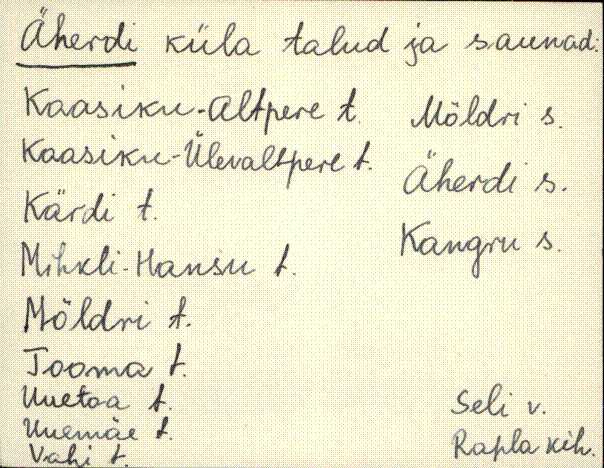 Äherdi küla talud ja saunad:
Kaasiku-Altpere t.
Kaasiku-Ülevaltpere t.
Kärdi t.
Mihkli-Hansu t.
Möldri t.
Tooma t.
Uuetoa t.
Uuemäe t.
Vahi t.
Möldri s.
Äherdi s.
Kangru s.
Seli v.
Rapla kih.